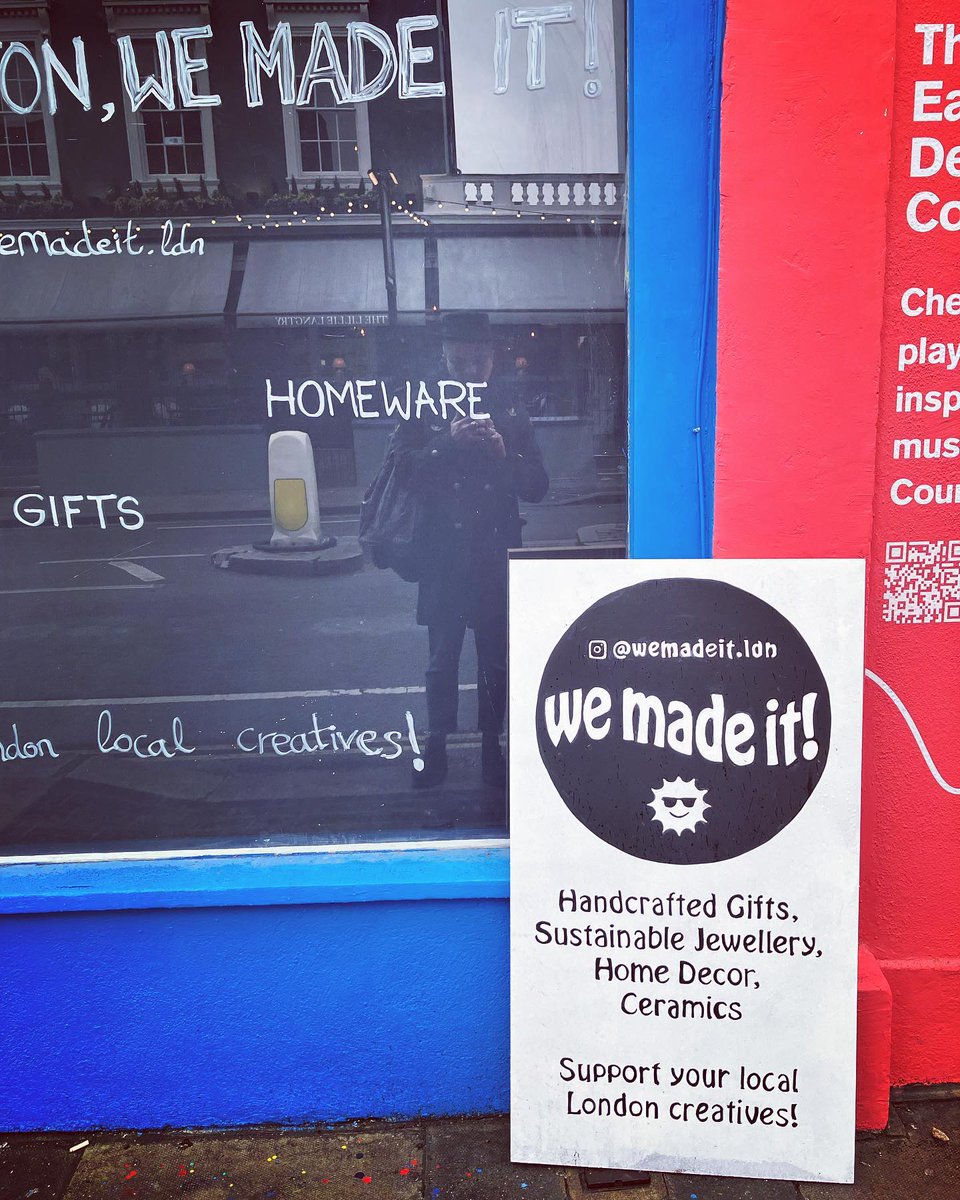 ON, WE MADE IT!
emadeit.ldn
THE LILLIE LANGTRY
HOMEWARE
GIFTS
ndon local creatives!
@wemadeit.ldn
we made it!
Handcrafted Gifts,
Sustainable Jewellery,
Home Decor,
Ceramics
Support your local
London creatives!
Th
Ea
De
Co
Che
play
insp
mus
Cour